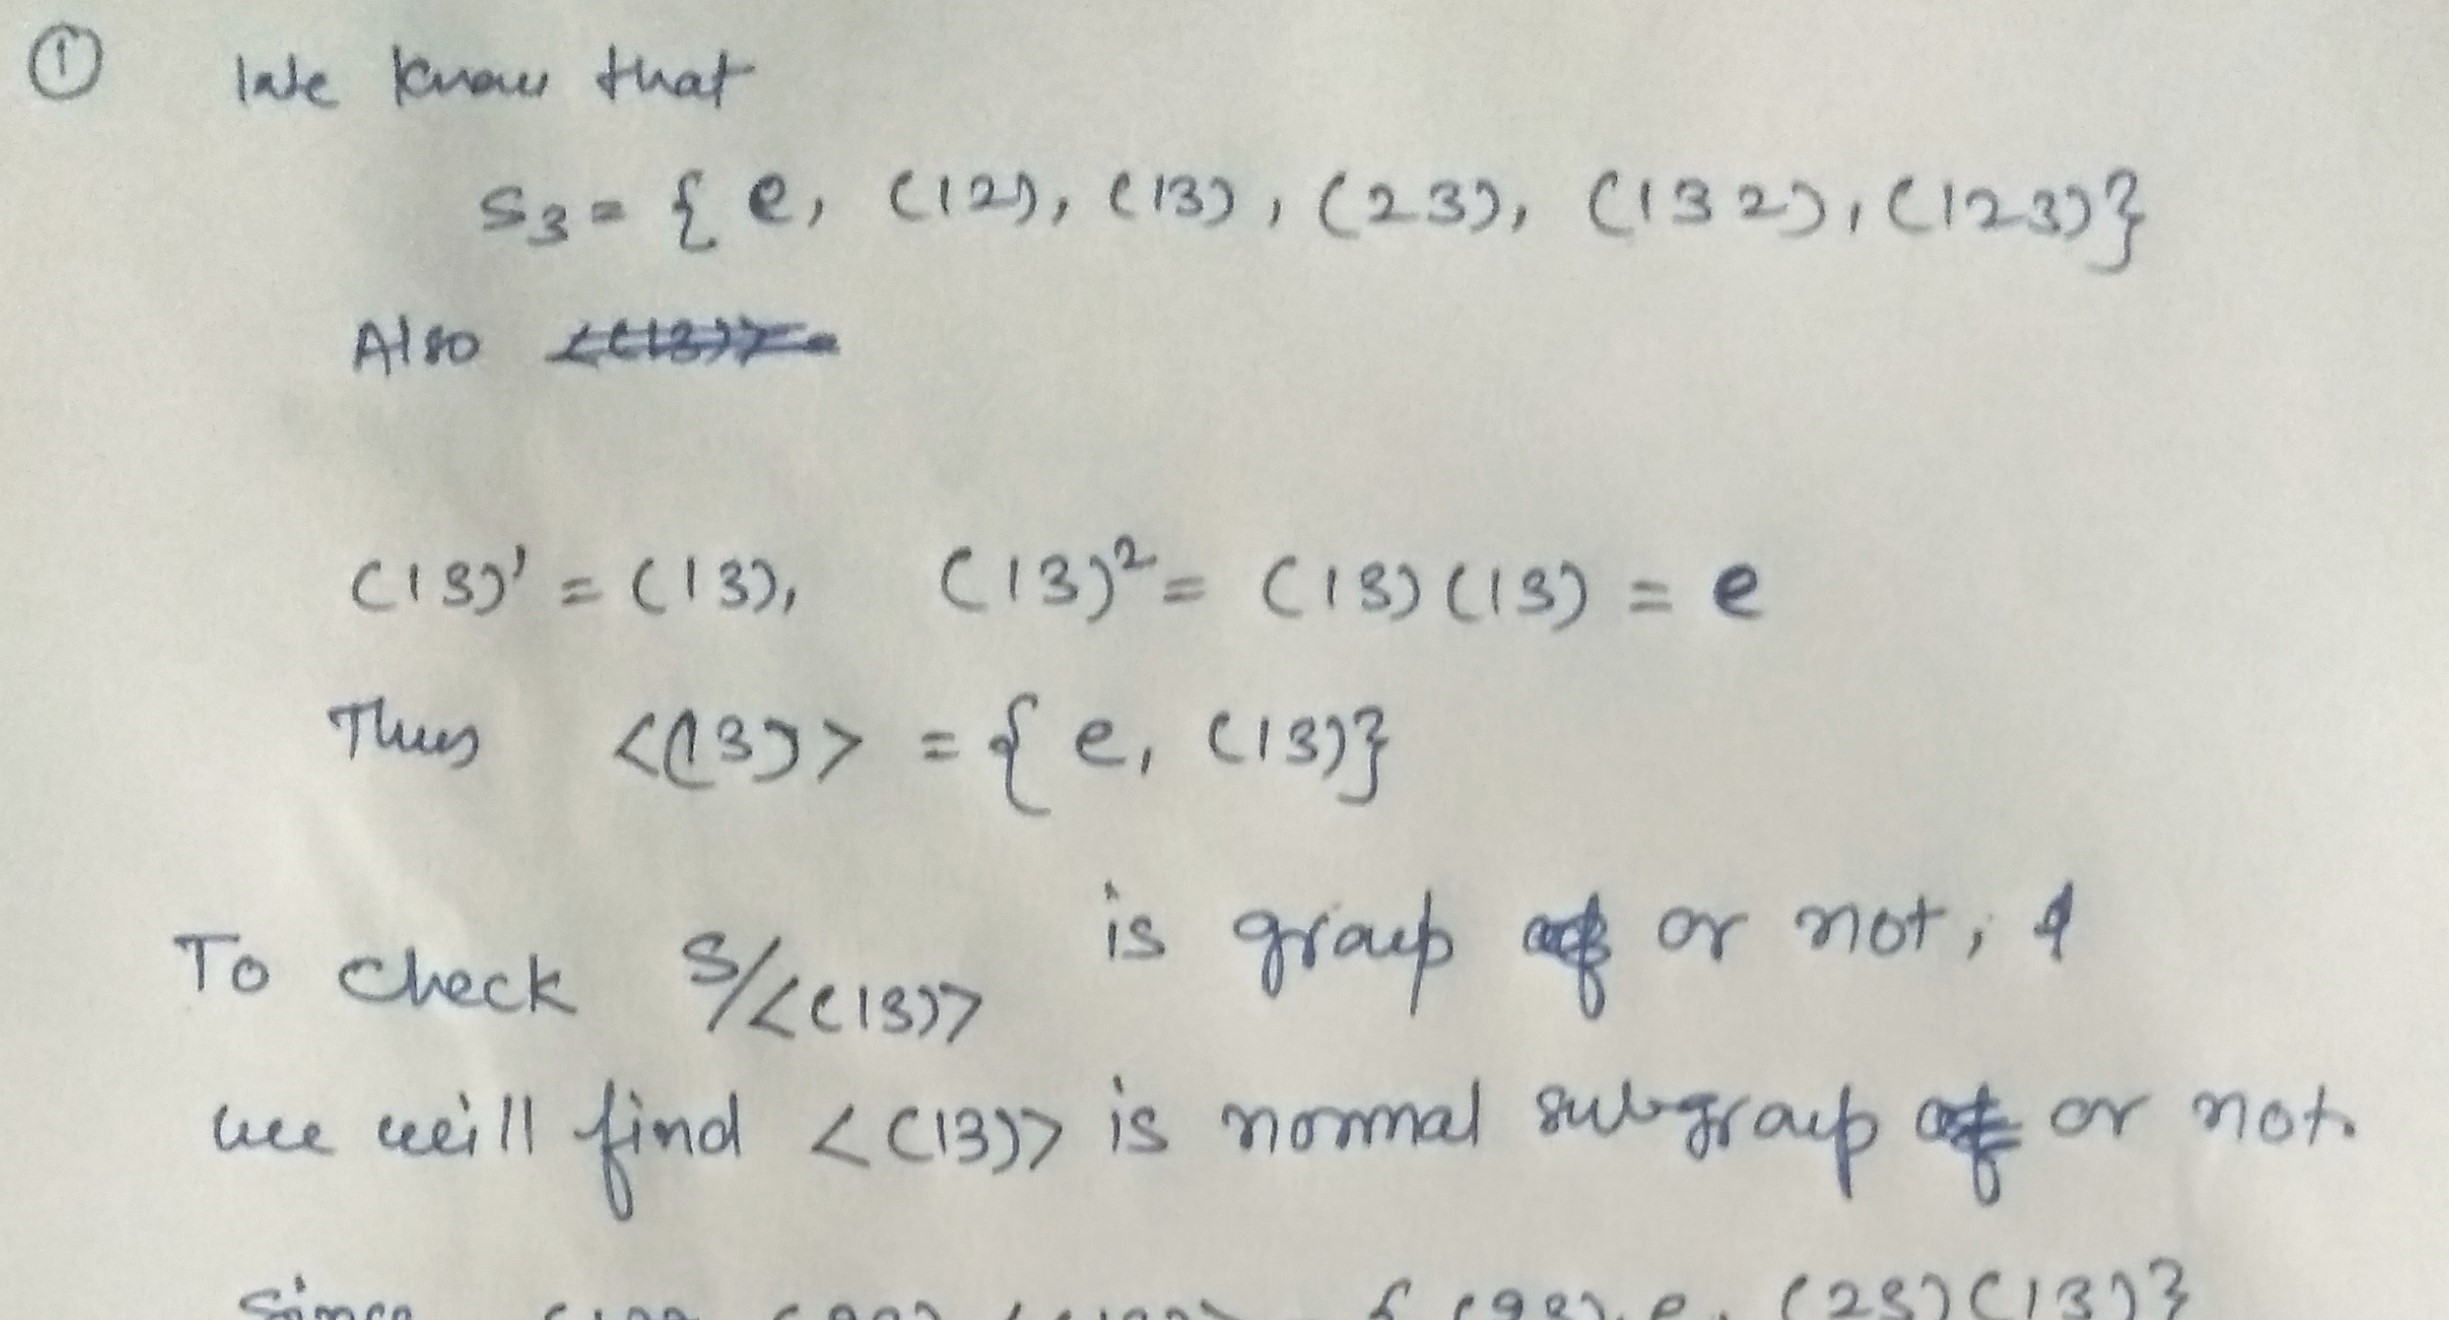 ① We know that
S3 = { e, (12), (13), (23), (132), (123)}
Also
(13)¹ = (13), (13)² = (13)(13) = e
Thus <(13)> = { e, (13)}
To check S/<(13)> is group or not,
we will find <(13)> is normal subgroup or not.
Since e, (23)(13)}